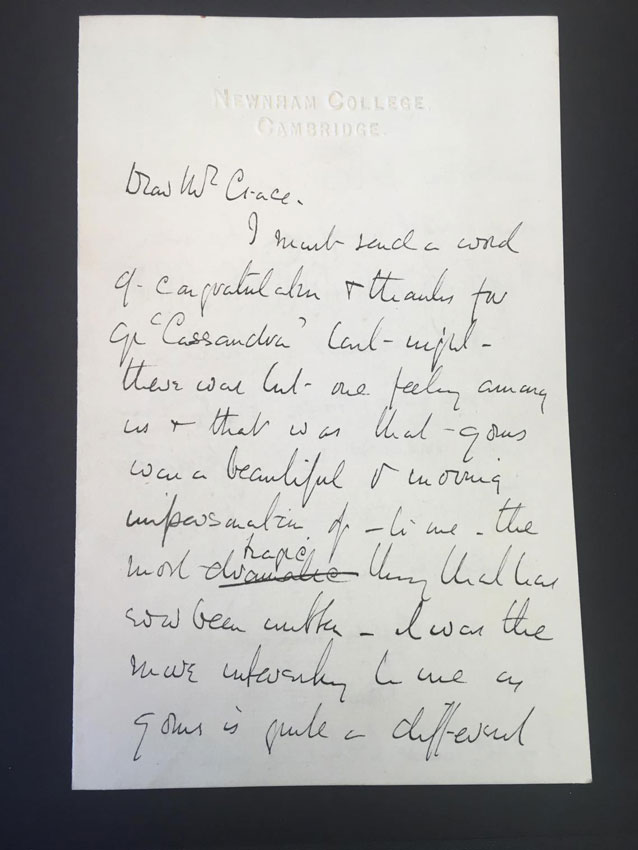 NEWNHAM COLLEGE,
CAMBRIDGE.
Dear Mr Crace.
I must send a word
of congratulation & thanks for
yr "Cassandra" last night –
there was but one feeling among
us & that was that yours
was a beautiful & moving
impersonation of – to me – the
most dramatic tragic thing that has
ever been written – It was the
more interesting to me as
yours is quite a different